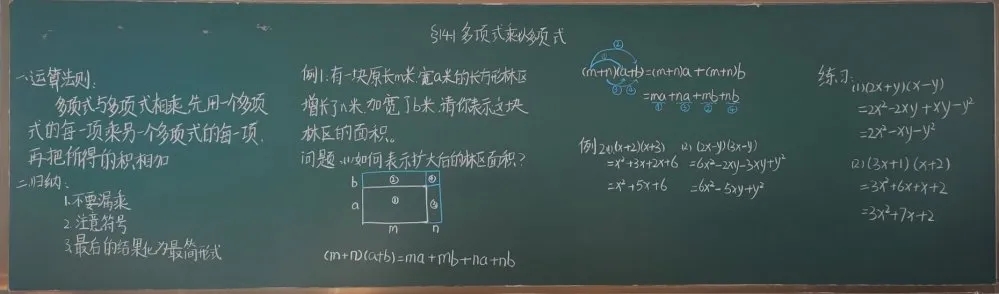 §14.1 多项式乘以多项式
一.运算法则:
多项式与多项式相乘,先用一个多项
式的每一项乘另一个多项式的每一项,
再把所得的积相加
二.归纳:
1.不要漏乘
2.注意符号
3.最后的结果化为最简形式
例1.有一块原长m米,宽a米的长方形林区
增长了n米,加宽了b米,请你表示这块
林区的面积。
问题:(1)如何表示扩大后的林区面积?
b ② ④
a ① ③
m n
(m+n)(a+b)=ma+mb+na+nb
②
(m+n)(a+b)=(m+n)a+(m+n)b
=ma+na+mb+nb
例2 (1)(x+2)(x+3)
=x²+3x+2x+6
=x²+5x+6
(2) (2x-y)(3x-y)
=6x²-2xy-3xy+y²
=6x²-5xy+y²
练习:
(1)(2x+y)(x-y)
=2x²-2xy+xy-y²
=2x²-xy-y²
(2)(3x+1)(x+2)
=3x²+6x+x+2
=3x²+7x+2